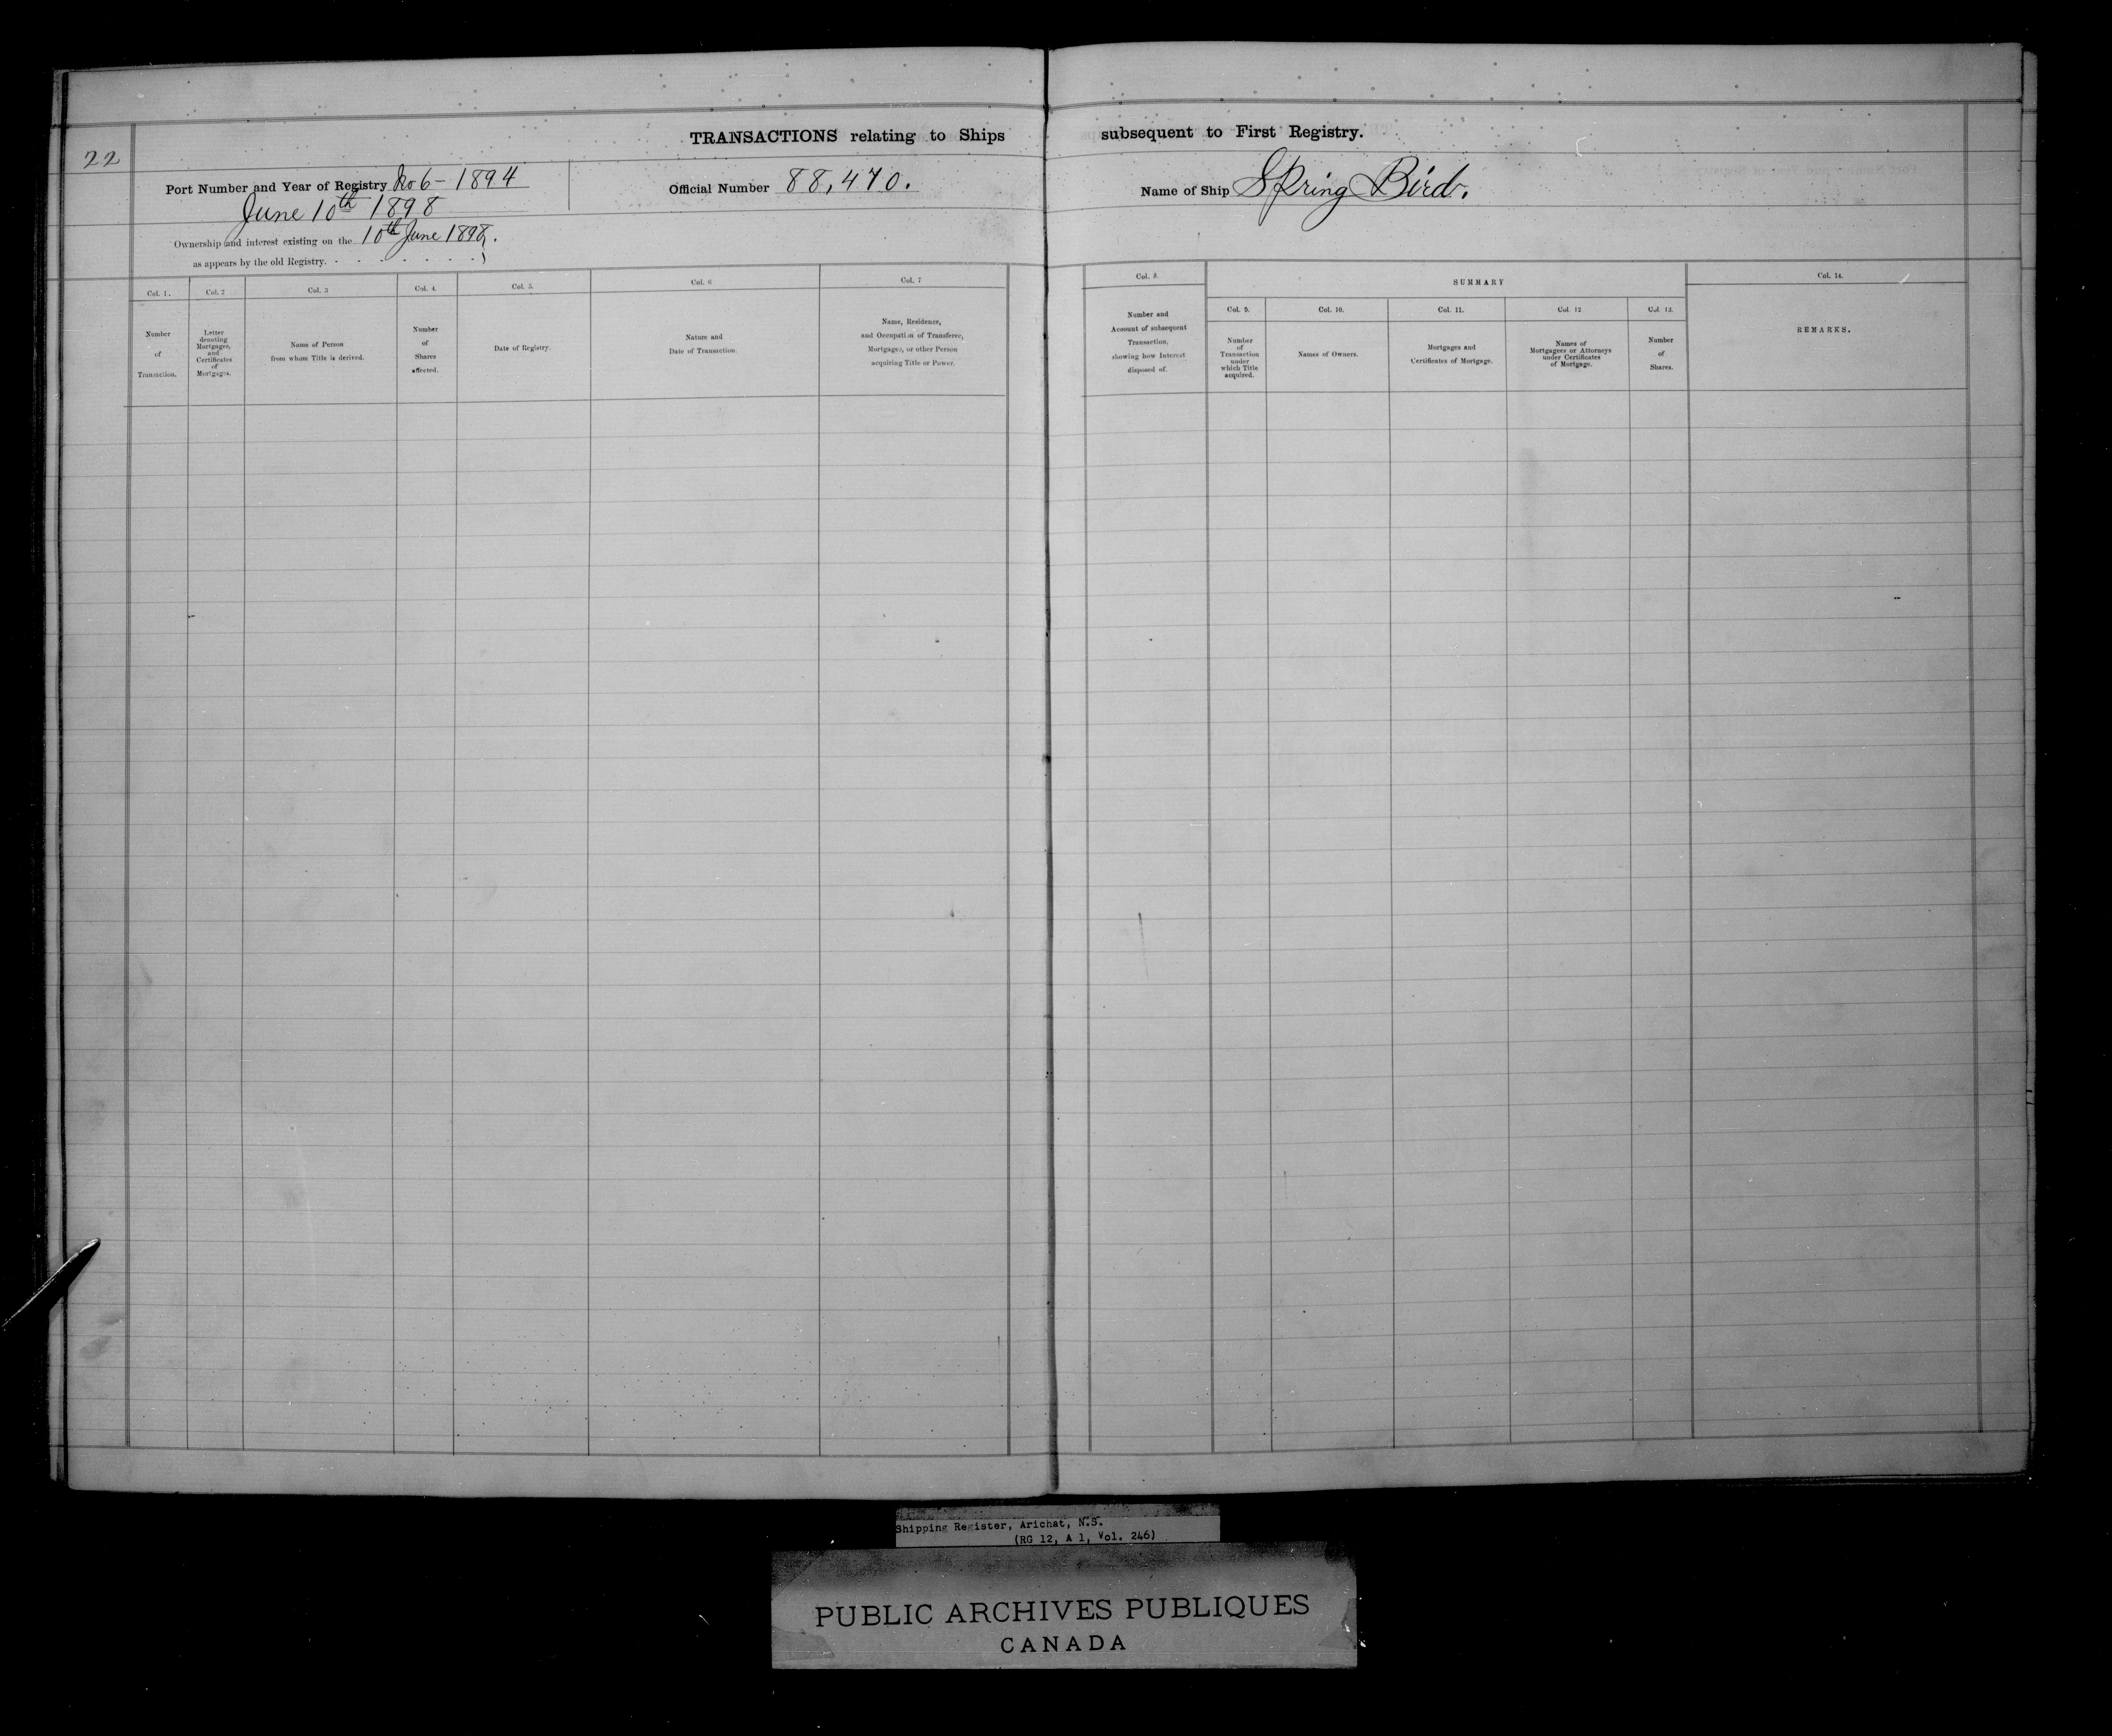 22
TRANSACTIONS relating to Ships subsequent to First Registry.
Port Number and Year of Registry No 6 - 1894
June 10th 1898
Official Number 88,470.
Name of Ship Spring Bird.
Ownership and interest existing on the 10th June 1898.
as appears by the old Registry.
Col. 1.
Number
of
Transaction.
Col. 2
Letter
denoting
Mortgages,
and
Certificates
of
Mortgages.
Col. 3
Name of Person
from whom Title is derived.
Col. 4.
Number
of
Shares
affected.
Col. 5.
Date of Registry.
Col. 6
Nature and
Date of Transaction.
Col. 7
Name, Residence,
and Occupation of Transferee,
Mortgagee, or other Person
acquiring Title or Power.
Col. 8.
Number and
Account of subsequent
Transaction,
showing how Interest
disposed of.
SUMMARY
Col. 9.
Number
of
Transaction
under
which Title
acquired.
Col. 10.
Names of Owners.
Col. 11.
Mortgages and
Certificates of Mortgage.
Col. 12
Names of
Mortgagees or Attorneys
under Certificates
of Mortgage.
Col. 13.
Number
of
Shares.
Col. 14.
REMARKS.
Shipping Register, Arichat, N.S.
(RG 12, A 1, Vol. 246)
PUBLIC ARCHIVES PUBLIQUES
CANADA